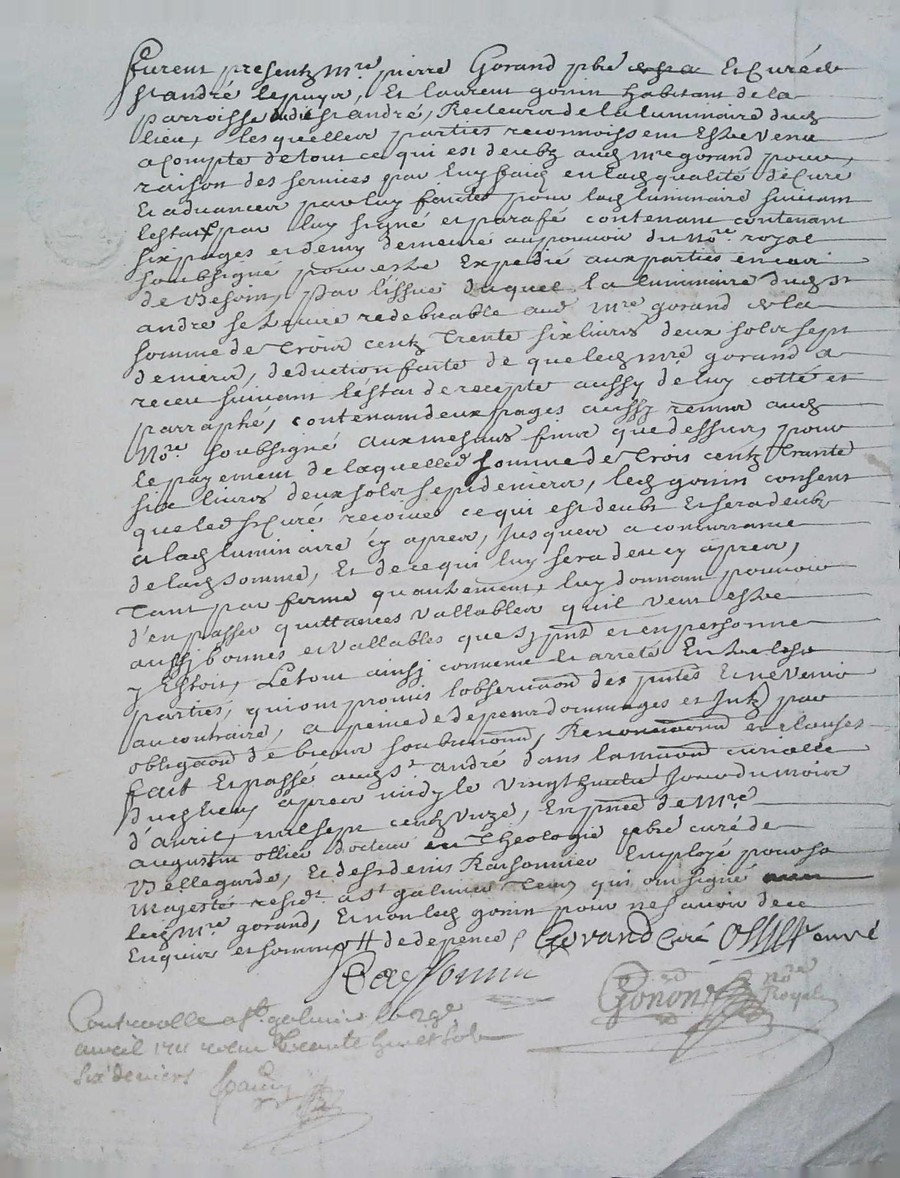 Furent presentz mre pierre Gorand pbre et Curé de
st andré le puyx, Et laurent gonin habitant de la
parroisse dudi st andré, Recteur de la luminaire dud
lieu, lesquelles parties reconnoissent Estre venu
a Compte de tout ce qui est deubz aud mre gorand pour
raison des services par luy faict en lad qualité de Curé
Et advances par luy faictes pour lad luminaire suivant
lestat par luy signé et parafé contenant contenant
six pages et demy demeuré au pouvoir du Nore royal
soubsigné pour estre Expedié aux parties en cas
de besoin, par lissue duquel la luminaire dud st
andré se treuve redebvable aud mre gorand de la
somme de Trois centz Trente six livres deux solz sept
deniers, deduction faite de que led mre gorand a
receu suivant lestat de recepte aussy de luy cotté et
parraphé, contenant deux pages aussy remis aud
Nore soubsigné aux mesmes fins que dessus, pour
le payement de laquelle somme de Trois centz Trante
six livres deux solz sept deniers, led gonin consent
que led sr Curé recoive ce qui est deubt et sera deubt
a lad luminaire cy apres, Jusques a concurrance
de lad somme, Et de ce qui luy sera deu cy apres,
Tant par ferme qu autrement, luy donnant pouvoir
d'en passer quittances vallables qu'il veut estre
aussy bonnes et vallables que sy pnt et en personne
y Estoit, Le tout ainsy convenu et arreté Entre les
parties, qui ont promis l'observaon des pntes Et ne venir
au contraire, a peine de depens dommages et Intz par
obligaon de biens soubmions, Renonciaons et clauses
fait Et passé aud st andré dans la maison curialle
dud lieu apres midy le vingt huitie Jour du mois
d'avril mil sept centz unze, En pnce de Mre
augustin ollier docteur en Theologie pbre curé de
Bellegarde, Et de sr denis Ransonnier Employé pour sa
Majesté residt a st galmier Temz qui ont signé
led mre gorand, Et non led gonin pour ne scavoir de ce
Enquis et sommé # de depence
Gorand Curé Ollier curé
Gonon Nore
Royal
Controolle a st galmier le 29e
avril 1711 receu Trante huit solz
six deniers